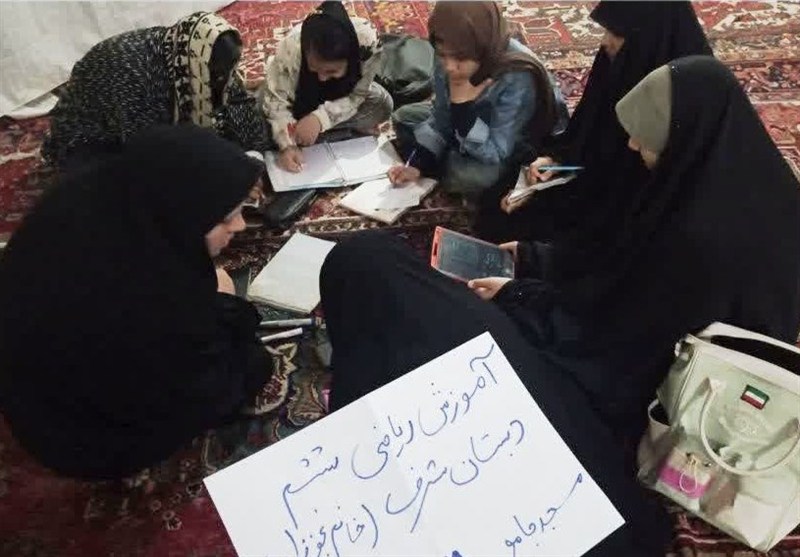 آموزش ریاضی ششم
دبستان شرف (خانم
مسجد جامع